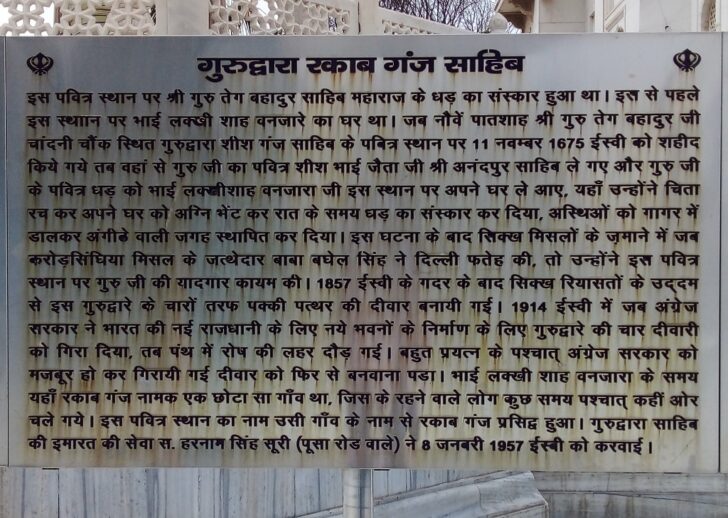 गुरुद्वारा रकाब गंज़ साहिब
इस पवित्र स्थान पर श्री गुरु तेग बहादुर साहिब महाराज के धड़ का संस्कार हुआ था। इस से पहले
इस स्थाान पर भाई लक्खी शाह वनजारे का घर था। जब नौवें पातशाह श्री गुरु तेग बहादुर जी
चांदनी चौंक स्थित गुरुद्वारा शीश गंज साहिब के पवित्र स्थान पर 11 नवम्बर 1675 ईस्वी को शहीद
किये गये तब वहां से गुरु जी का पवित्र शीश भाई जैता जी श्री अनंदपुर साहिब ले गए और गुरु जी
के पवित्र धड़ को भाई लक्खीशाह वनजारा जी इस स्थान पर अपने घर ले आए, यहाँ उन्होंने चिता
रच कर अपने घर को अग्नि भेंट कर रात के समय धड़ का संस्कार कर दिया, अस्थिओं को गागर में
डालकर अंगीठे वाली जगह स्थापित कर दिया। इस घटना के बाद सिक्ख मिसलों के ज़माने में जब
करोड़सिंघिया मिसल के जत्थेदार बाबा बघेल सिंह ने दिल्ली फतेह की, तो उन्होंने इस पवित्र
स्थान पर गुरु जी की यादगार कायम की। 1857 ईस्वी के गदर के बाद सिक्ख रियासतों के उद्दम
से इस गुरुद्वारे के चारों तरफ पक्की पत्थर की दीवार बनायी गई। 1914 ईस्वी में जब अंग्रेज
सरकार ने भारत की नई राजधानी के लिए नये भवनों के निर्माण के लिए गुरुद्वारे की चार दीवारी
को गिरा दिया, तब पंथ में रोष की लहर दौड़ गई। बहुत प्रयत्न के पश्चात् अंग्रेज सरकार को
मजबूर हो कर गिरायी गई दीवार को फिर से बनवाना पडा। भाई लक्खी शाह वनजारा के समय
यहाँ रकाब गंज नामक एक छोटा सा गाँव था, जिस के रहने वाले लोग कुछ समय पश्चात् कहीं ओर
चले गये। इस पवित्र स्थान का नाम उसी गाँव के नाम से रकाब गंज प्रसिद्व हुआ। गुरुद्वारा साहिब
की इमारत की सेवा स. हरनाम सिंह सूरी (पूसा रोड वाले) ने 8 जनबरी 1957 ईस्वी को करवाई।